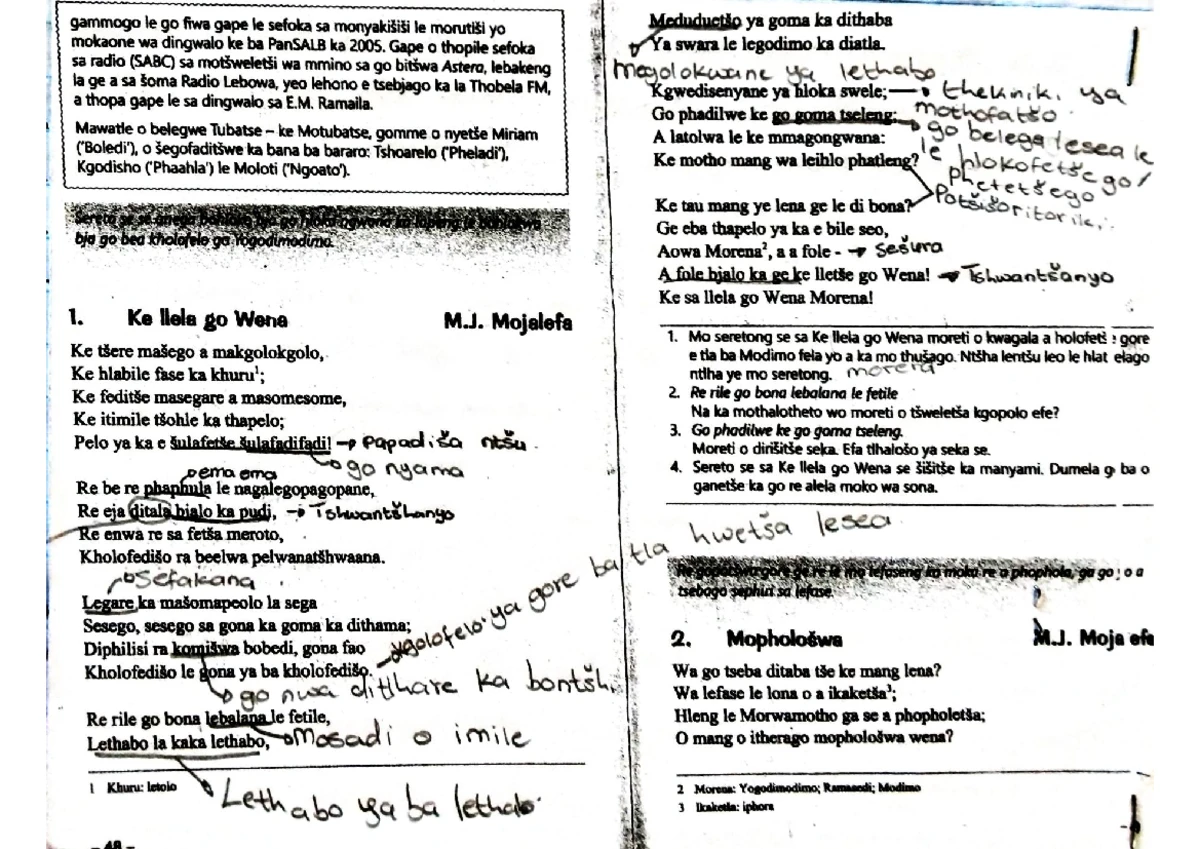 gammogo le go fiwa gape le sefoka sa monyakišiši le morutiši yo
mokaone wa dingwalo ke ba PanSALB ka 2005. Gape o thopile sefoka
sa radio (SABC) sa motšweletši wa mmino sa go bitšwa Astera, lebakeng
la ge a sa šoma Radio Lebowa, yeo lehono e tsebjago ka la Thobela FM,
a thopa gape le sa dingwalo sa E.M. Ramaila.
Mawatle o belegwe Tubatse – ke Motubatse, gomme o nyetše Miriam
('Boledi'), o šegofaditšwe ka bana ba bararo: Tshoarelo ('Pheladi'),
Kgodisho ('Phaahla') le Moloti ('Ngoato').
bja go bea kholofelo go Yogodimodimo.
1. Ke llela go Wena M.J. Mojalefa
Ke tšere mašego a makgolokgolo,
Ke hlabile fase ka khuru1;
Ke feditše masegare a masomesome,
Ke itimile tšohle ka thapelo;
Pelo ya ka e šulafetše šulafadifadi! → papadiša ntšu.
go nyama
ema ema
Re be re phaphula le nagalegopagopane,
Re eja ditala bjalo ka pudi, → Tshwantšhanyo
Re enwa re sa fetša meroto,
Kholofedišo ra beelwa pelwanatšhwaana.
Sefakana
Legare ka mašomapeolo la sega
Sesego, sesego sa gona ka goma ka dithama;
Diphilisi ra komišwa bobedi, gona fao
Kholofedišo le gona ya ba kholofedišo. kgolofelo ya gore ba tla hwetša lesea
go nwa ditlhare ka bontšhi
Re rile go bona lebalana le fetile,
Lethabo la kaka lethabo, Mosadi o imile
1 Khuru: letolo
Lethabo ya ba lethabo
Meduduetšo ya goma ka dithaba
Ya swara le legodimo ka diatla.
Mogolokwane ya lethabo
Kgwedisenyane ya hloka swele; → thekniki ya
mothofatšo
Go phadilwe ke go goma tseleng: → go belega lesea le
A latolwa le ke mmagongwana: le hlokofetše go/
Ke motho mang wa leihlo phatleng? phetetšego
Potšišoritoriki.
Ke tau mang ye lena ge le di bona?
Ge eba thapelo ya ka e bile seo,
Aowa Morena2, a a fole - → Sešura
A fole bjalo ka ge ke lletše go Wena! → Tshwantšanyo
Ke sa llela go Wena Morena!
1. Mo seretong se sa Ke llela go Wena moreti o kwagala a holofetš gore
e tla ba Modimo fela yo a ka mo thušago. Ntšha lentšu leo le hlat elago
ntlha ye mo seretong. morena
2. Re rile go bona lebalana le fetile
Na ka mothalotheto wo moreti o tšweletša kgopolo efe?
3. Go phadilwe ke go goma tseleng.
Moreti o dirišitše seka. Efa tlhalošo ya seka se.
4. Sereto se sa Ke llela go Wena se šišitše ka manyami. Dumela g ba o
ganetše ka go re alela moko wa sona.
tsebago sephiri sa lefase.
2. Mophološwa M.J. Moja efa
Wa go tseba ditaba tše ke mang lena?
Wa lefase le lona o a ikaketša3;
Hleng le Morwamotho ga se a phopholetša;
O mang o itherago mophološwa wena?
2 Morena: Yogodimodimo; Ramasedi; Modimo
3 Ikaketša: iphora